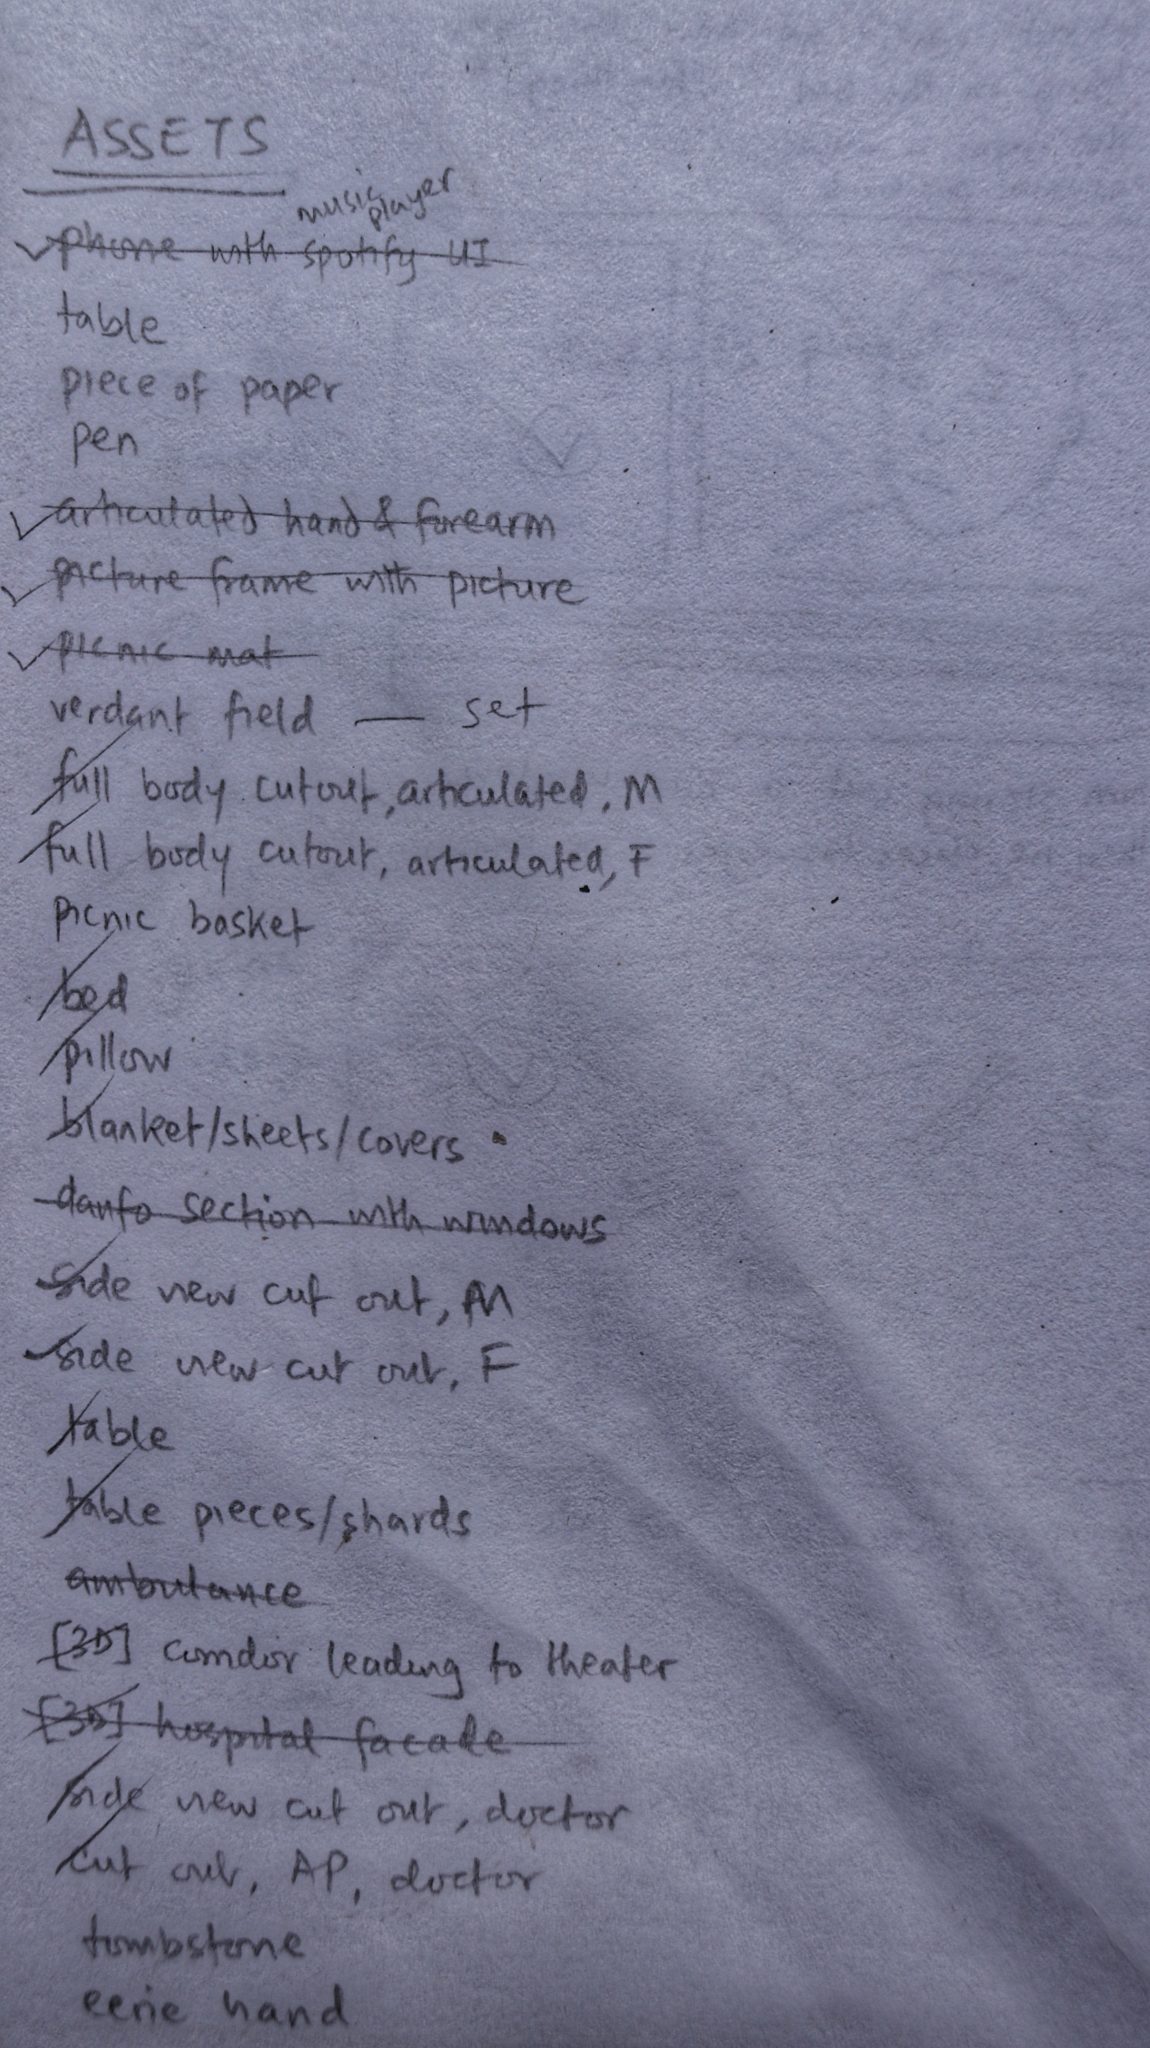 ASSETS
music player
phone with spotify UI
table
piece of paper
pen
articulated hand & forearm
picture frame with picture
picnic mat
verdant field — set
full body cutout, articulated, M
full body cutout, articulated, F
picnic basket
bed
pillow
blanket/sheets/covers
danfo section with windows
side view cut out, M
side view cut out, F
table
table pieces/shards
ambulance
[3D] corridor leading to theater
[3D] hospital facade
side view cut out, doctor
cut out, AP, doctor
tombstone
eerie hand